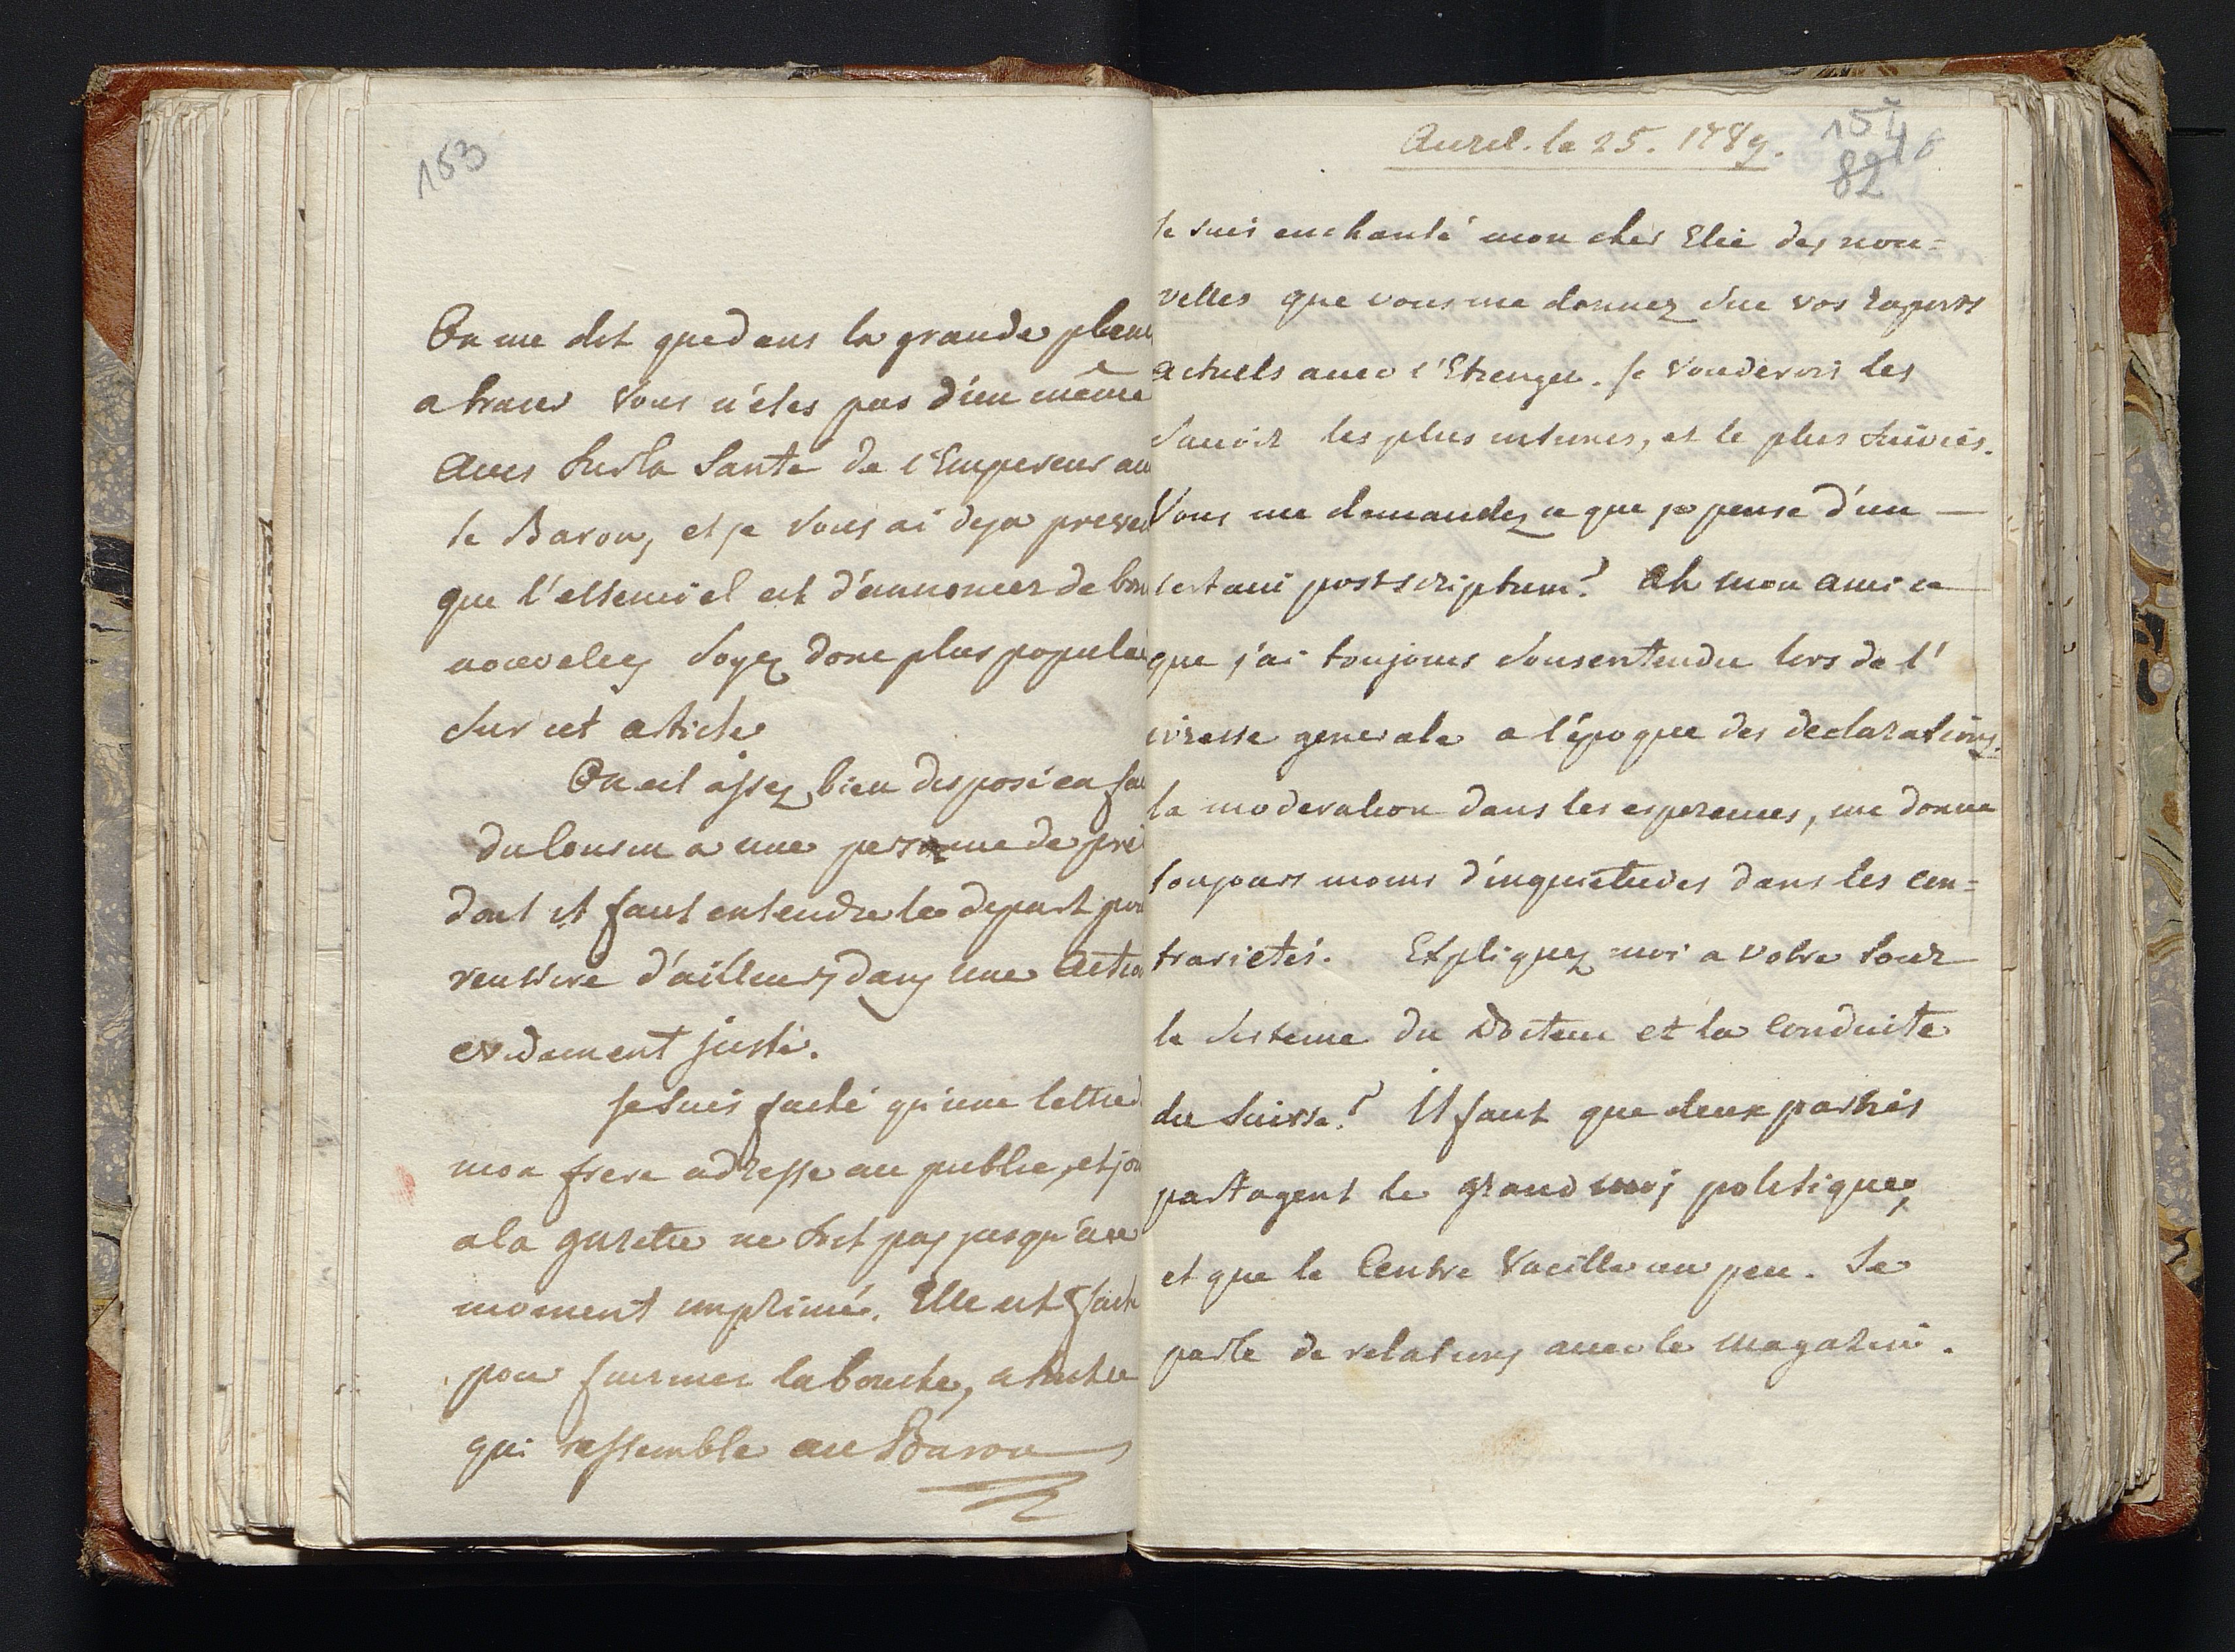 153
On me dit que dans la grande
a tracer vous n'étes pas d'un même
aves sur la Santé de l'Empereur au
le Baron, et je vous ai deja
que l'essenciel est d'annoncer de
nouveles Soyez donc plus
sur cet article
On est assez bien disposé en
du Cousin a une personne de
dont il faut entendre le depart
reussire d'ailleurs dans une
evidement juste.
Je suis faché qu'une lettre
mon frere adresse au public, et
a la gazette ne soit pas jusqu'a ce
moment imprimé. Elle est
pour fermer la bouche, a
qui ressemble au Baron
Avril. le 25. 1789.
154
82
Je suis enchanté mon cher Elie des nou=
velles que vous me donnez sur vos raports
actuels avec l'Etrenger. Je vouderois les
savoir les plus intimes, et le plus suivies.
Vous me demandez ce que je pense d'un
certain postscriptum? Ah mon ami ce
que j'ai toujours sousentendu lors de l'
ivresse generale a l'époque des declarations.
la moderation dans les esperences, me donne
toujours moins d'inquietudes dans les con=
trarietés. Expliquez moi a votre tour
le sisteme du Docteur et la conduite
du Suisse? Il faut que deux partis
partagent le grand moi politique,
et que le Centre vacille un peu. Je
parle de relations avec le magazin.